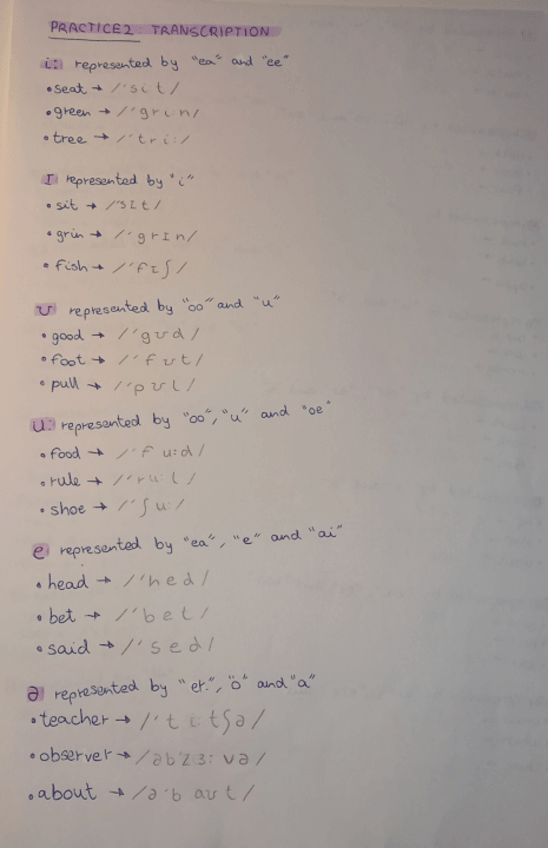 PRACTICE2 TRANSCRIPTION
i: represented by "ea" and "ee"
• seat → /ˈsit/
• green → /ˈgri:n/
• tree → /ˈtri:/
I represented by "i"
• sit → /ˈsIt/
• grin → /ˈgrIn/
• fish → /ˈfIʃ/
ʊ represented by "oo" and "u"
• good → /ˈgʊd/
• foot → /ˈfʊt/
• pull → /ˈpʊl/
u: represented by "oo", "u" and "oe"
• food → /ˈfu:d/
• rule → /ˈru:l/
• shoe → /ˈʃu:/
e represented by "ea", "e" and "ai"
• head → /ˈhed/
• bet → /ˈbet/
• said → /ˈsed/
ə represented by "er", "o" and "a"
• teacher → /ˈti:tʃə/
• observer → /əbˈzɜ:və/
• about → /əˈbaʊt/